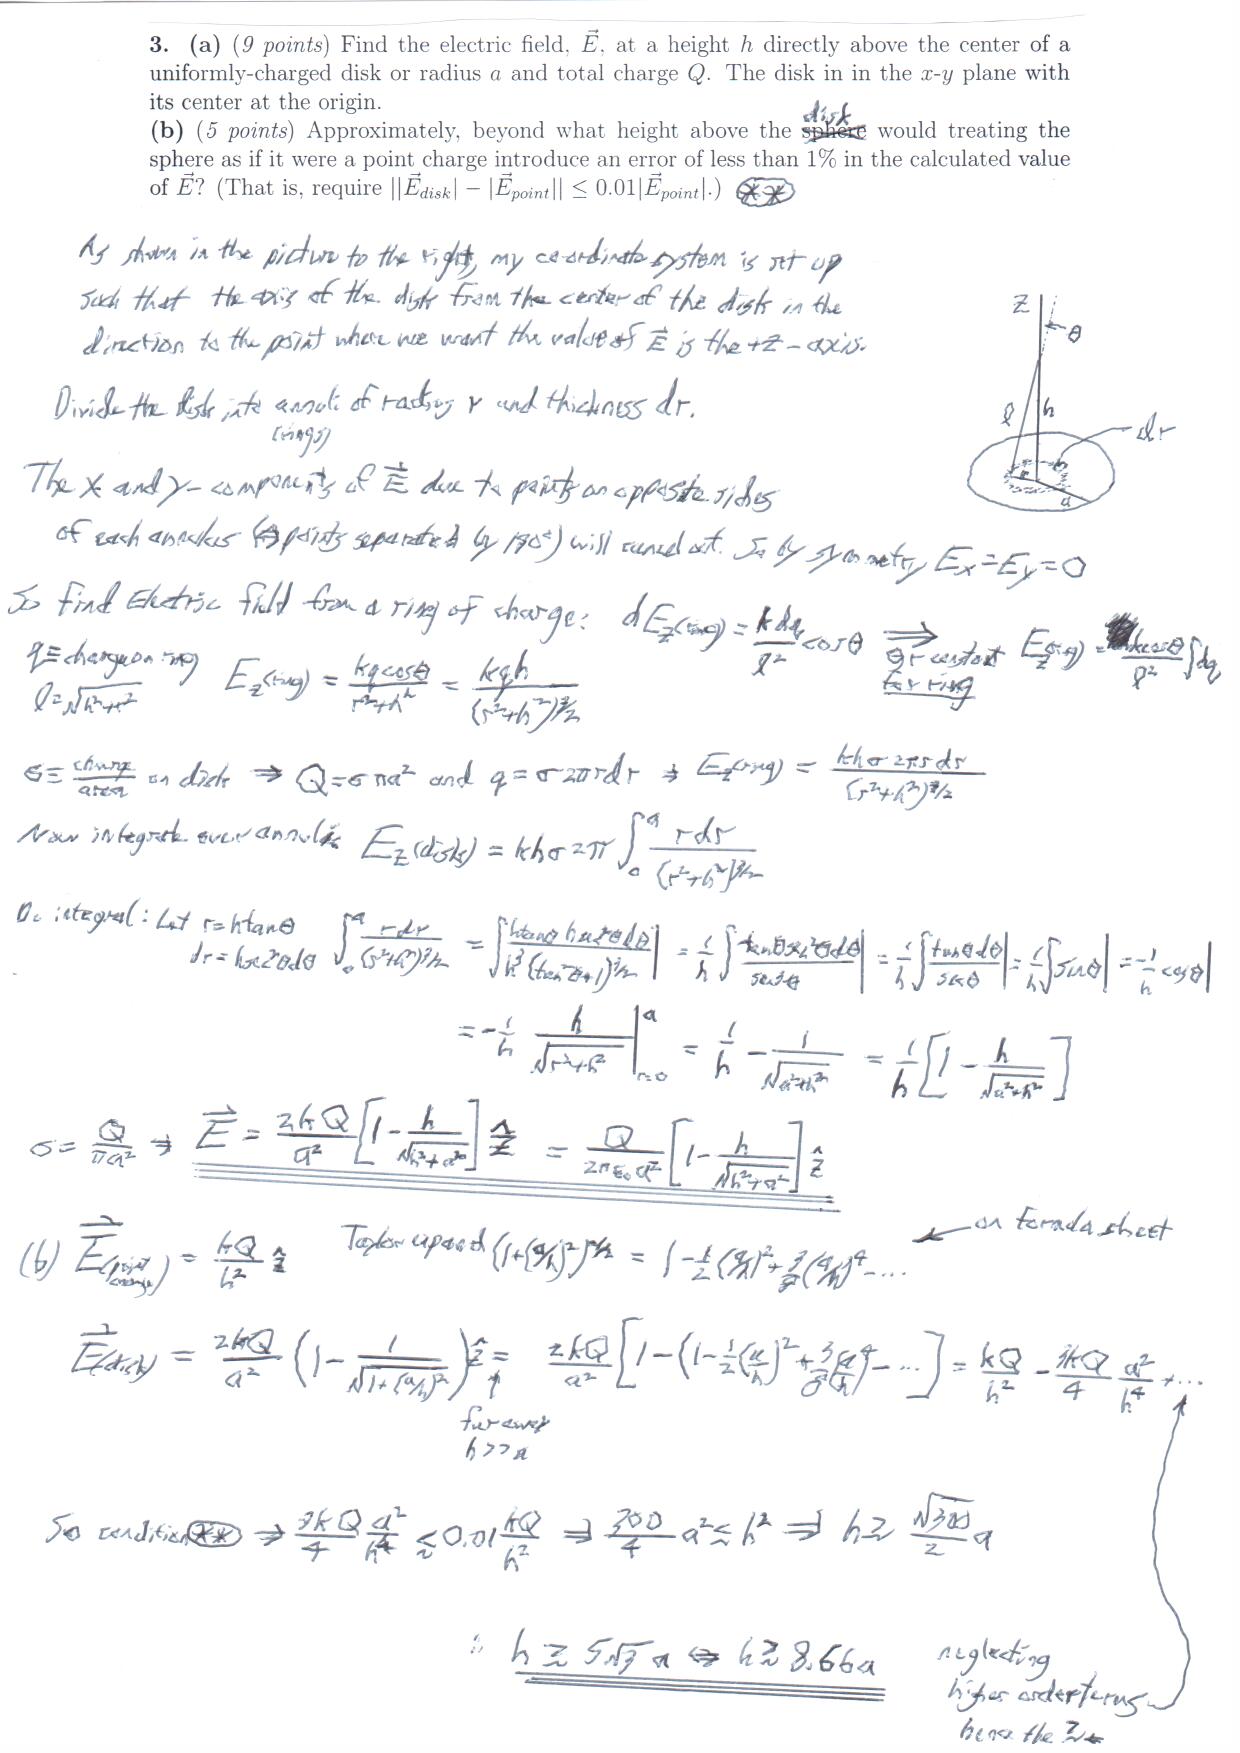 3. (a) (9 points) Find the electric field, $\vec{E}$, at a height h directly above the center of a
uniformly-charged disk or radius a and total charge Q. The disk in in the x-y plane with
its center at the origin.
disk
(b) (5 points) Approximately, beyond what height above the ~~sphere~~ would treating the
sphere as if it were a point charge introduce an error of less than 1% in the calculated value
of $\vec{E}$? (That is, require $||\vec{E}_{disk}| - |\vec{E}_{point}|| \leq 0.01|\vec{E}_{point}|$.) (**)
As shown in the picture to the right, my coordinate system is set up
such that the axis of the disk from the center of the disk in the
direction to the point where we want the value of $\vec{E}$ is the +z-axis.
z
θ
l
h
dr
r
a
Divide the disk into annuli of radius r and thickness dr.
(rings)
The x and y-components of $\vec{E}$ due to points on opposite sides
of each annulus (points separated by 180°) will cancel out. So by symmetry $E_x = E_y = 0$
So find Electric field from a ring of charge: $dE_z(ring) = \frac{k dq}{l^2} \cos\theta$ ⇒ $E_z(ring) = \frac{k\cos\theta}{l^2} \int dq$
θ, r constant
for ring
q ≡ charge on ring
$l = \sqrt{h^2+r^2}$
$E_z(ring) = \frac{kq\cos\theta}{r^2+h^2} = \frac{kqh}{(r^2+h^2)^{3/2}}$
$\sigma \equiv \frac{charge}{area}$ on disk ⇒ $Q = \sigma\pi a^2$ and $q = \sigma 2\pi r dr$ ⇒ $E_z(ring) = \frac{kh\sigma 2\pi r dr}{(r^2+h^2)^{3/2}}$
Now integrate over annuli: $E_z(disk) = kh\sigma 2\pi \int_0^a \frac{r dr}{(r^2+h^2)^{3/2}}$
Do integral: Let $r = h\tan\theta$
$dr = h\sec^2\theta d\theta$
$\int_0^a \frac{r dr}{(r^2+h^2)^{3/2}} = \int \frac{h\tan\theta h\sec^2\theta d\theta}{h^3(\tan^2\theta+1)^{3/2}}| = \frac{1}{h} \int \frac{\tan\theta\sec^2\theta d\theta}{\sec^3\theta}| = \frac{1}{h} \int \frac{\tan\theta d\theta}{\sec\theta}| = \frac{1}{h} \int \sin\theta| = -\frac{1}{h}\cos\theta|$
$= -\frac{1}{h} \frac{h}{\sqrt{r^2+h^2}}|_{r=0}^{a} = \frac{1}{h} - \frac{1}{\sqrt{a^2+h^2}} = \frac{1}{h}[1 - \frac{h}{\sqrt{a^2+h^2}}]$
$\sigma = \frac{Q}{\pi a^2}$ ⇒ $\vec{E} = \frac{2kQ}{a^2}[1 - \frac{h}{\sqrt{h^2+a^2}}]\hat{z} = \frac{Q}{2\pi\epsilon_0 a^2}[1 - \frac{h}{\sqrt{h^2+a^2}}]\hat{z}$
on formula sheet
(b) $\vec{E}(point charge) = \frac{kQ}{h^2}\hat{z}$ Taylor expand $(1+(a/h)^2)^{-1/2} = 1 - \frac{1}{2}(a/h)^2 + \frac{3}{8}(a/h)^4 - ...$
$\vec{E}(disk) = \frac{2kQ}{a^2}(1 - \frac{1}{\sqrt{1+(a/h)^2}})\hat{z} = \frac{2kQ}{a^2}[1 - (1 - \frac{1}{2}(\frac{a}{h})^2 + \frac{3}{8}(\frac{a}{h})^4 - ...] = \frac{kQ}{h^2} - \frac{3kQ}{4}\frac{a^2}{h^4} + ...$
far away
h>>a
So condition (**) ⇒ $\frac{3kQ}{4}\frac{a^2}{h^4} \lesssim 0.01\frac{kQ}{h^2}$ ⇒ $\frac{300}{4}a^2 \lesssim h^2$ ⇒ $h \gtrsim \frac{\sqrt{300}}{2}a$
∴ $h \gtrsim 5\sqrt{3}a$ ⇔ $h \gtrsim 8.66a$
neglecting
higher order terms
hence the ≳